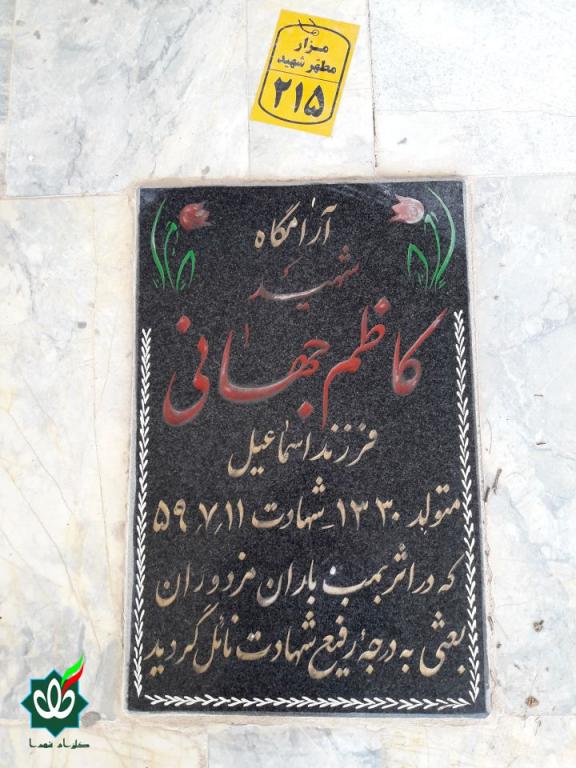 مزار
مطهر شهید
۲۱۵
آرامگاه
شهید
کاظم جهانی
فرزند اسماعیل
متولد ۱۳۳۰ـ شهادت ۵۹٫۷٫۱۱
که در اثر بمب باران مزدوران
بعثی به درجهٔ رفیع شهادت نائل گردید